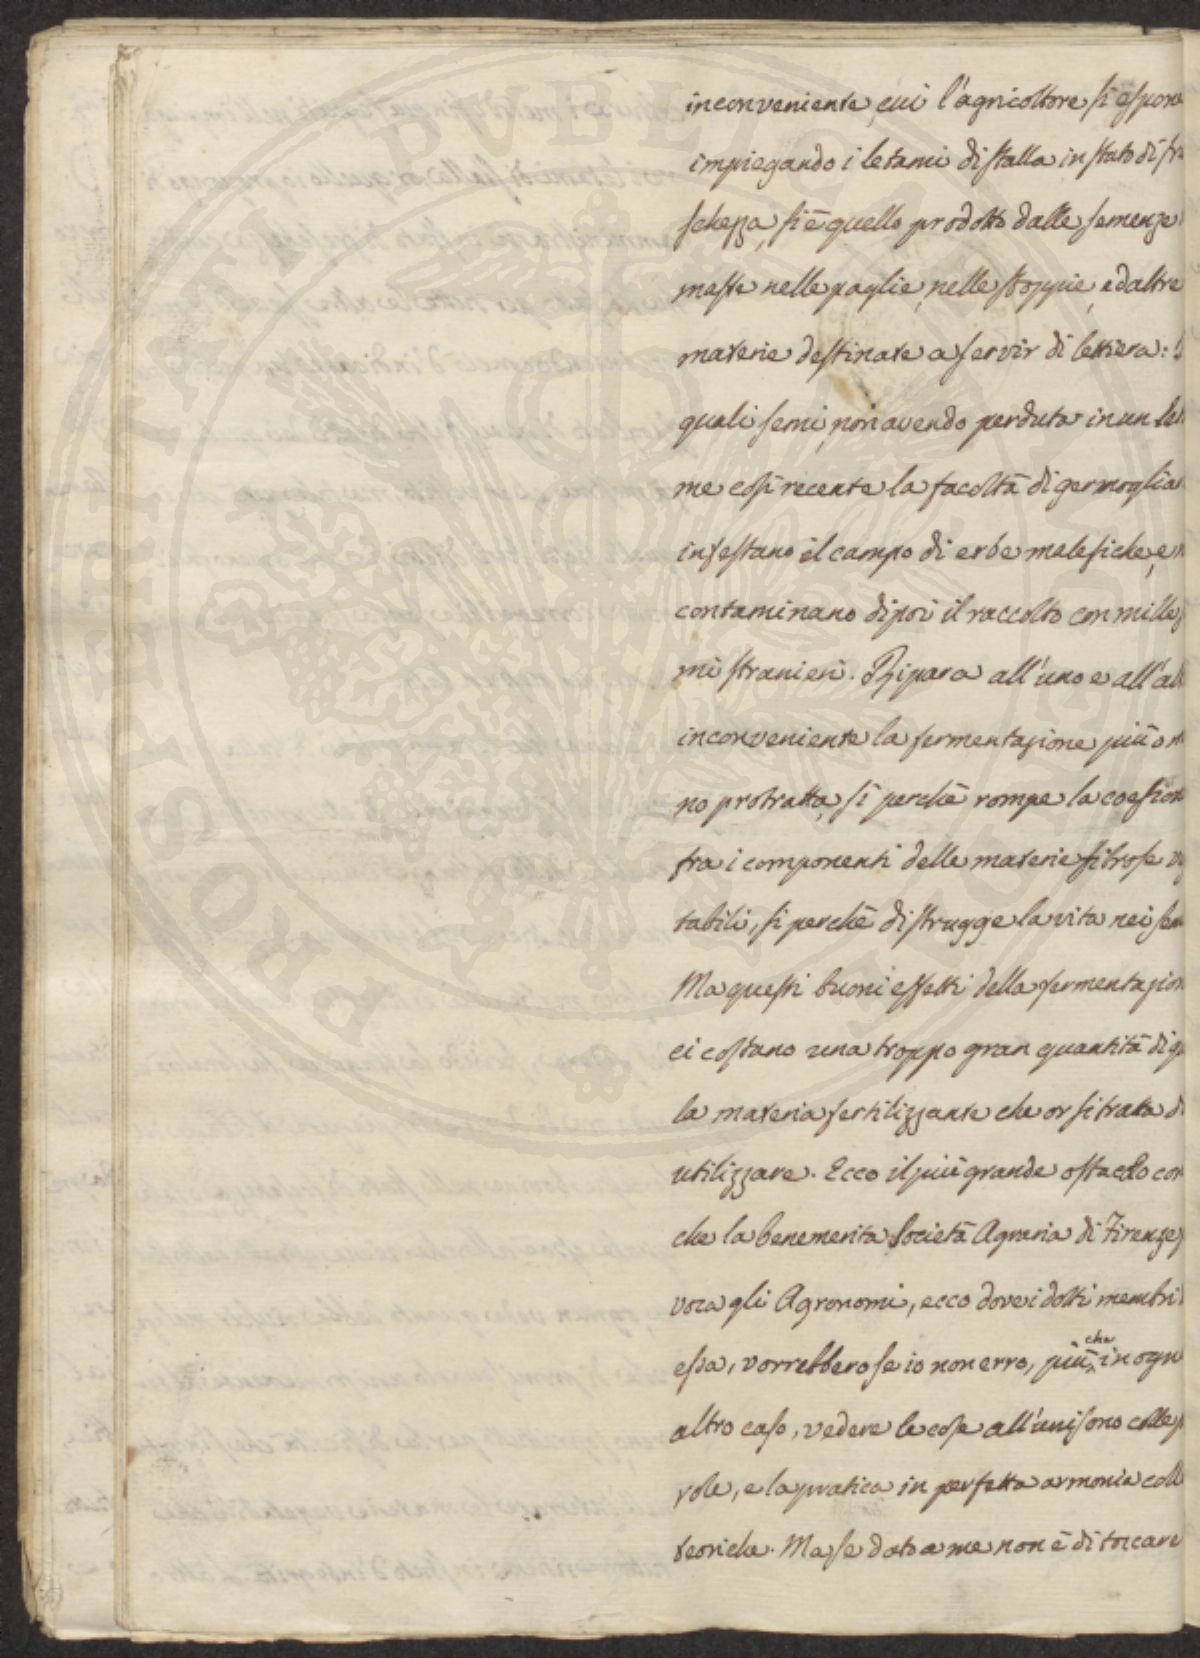 inconveniente, cui l'agricoltore si espone
impiegando i letami di stalla in stato di fre
schezza, si è quello prodotto dalle semenze
maste nelle paglie, nelle stoppie, ed altre
materie destinate a servir di lettiera:
quali semi, non avendo perduta in un leta
me così recente la facoltà di germogliar
infestano il campo di erbe malefiche, e
contaminano dipoi il raccolto con mille
mi stranieri. Ripara all'uno e all'alt
inconveniente la fermentazione più o me
no protratta, sì perchè rompe la coesion
tra i componenti delle materie fibrose ve
tabili, sì perchè distrugge la vita nei sem
Ma questi buoni effetti della fermentazion
ci costano una troppo gran quantità di q
la materia fertilizzante che or si tratta d
utilizzare. Ecco il più grande ostacolo con
che la benemerita Società Agraria di Firenze
voca gli Agronomi, ecco dove i dotti membri
essa, vorrebbero se io non erro, più che in ogn
altro caso, vedere le cose all'unisono colle p
role, e la pratica in perfetta armonia coll
teoriche. Ma se dato a me non è di toccare